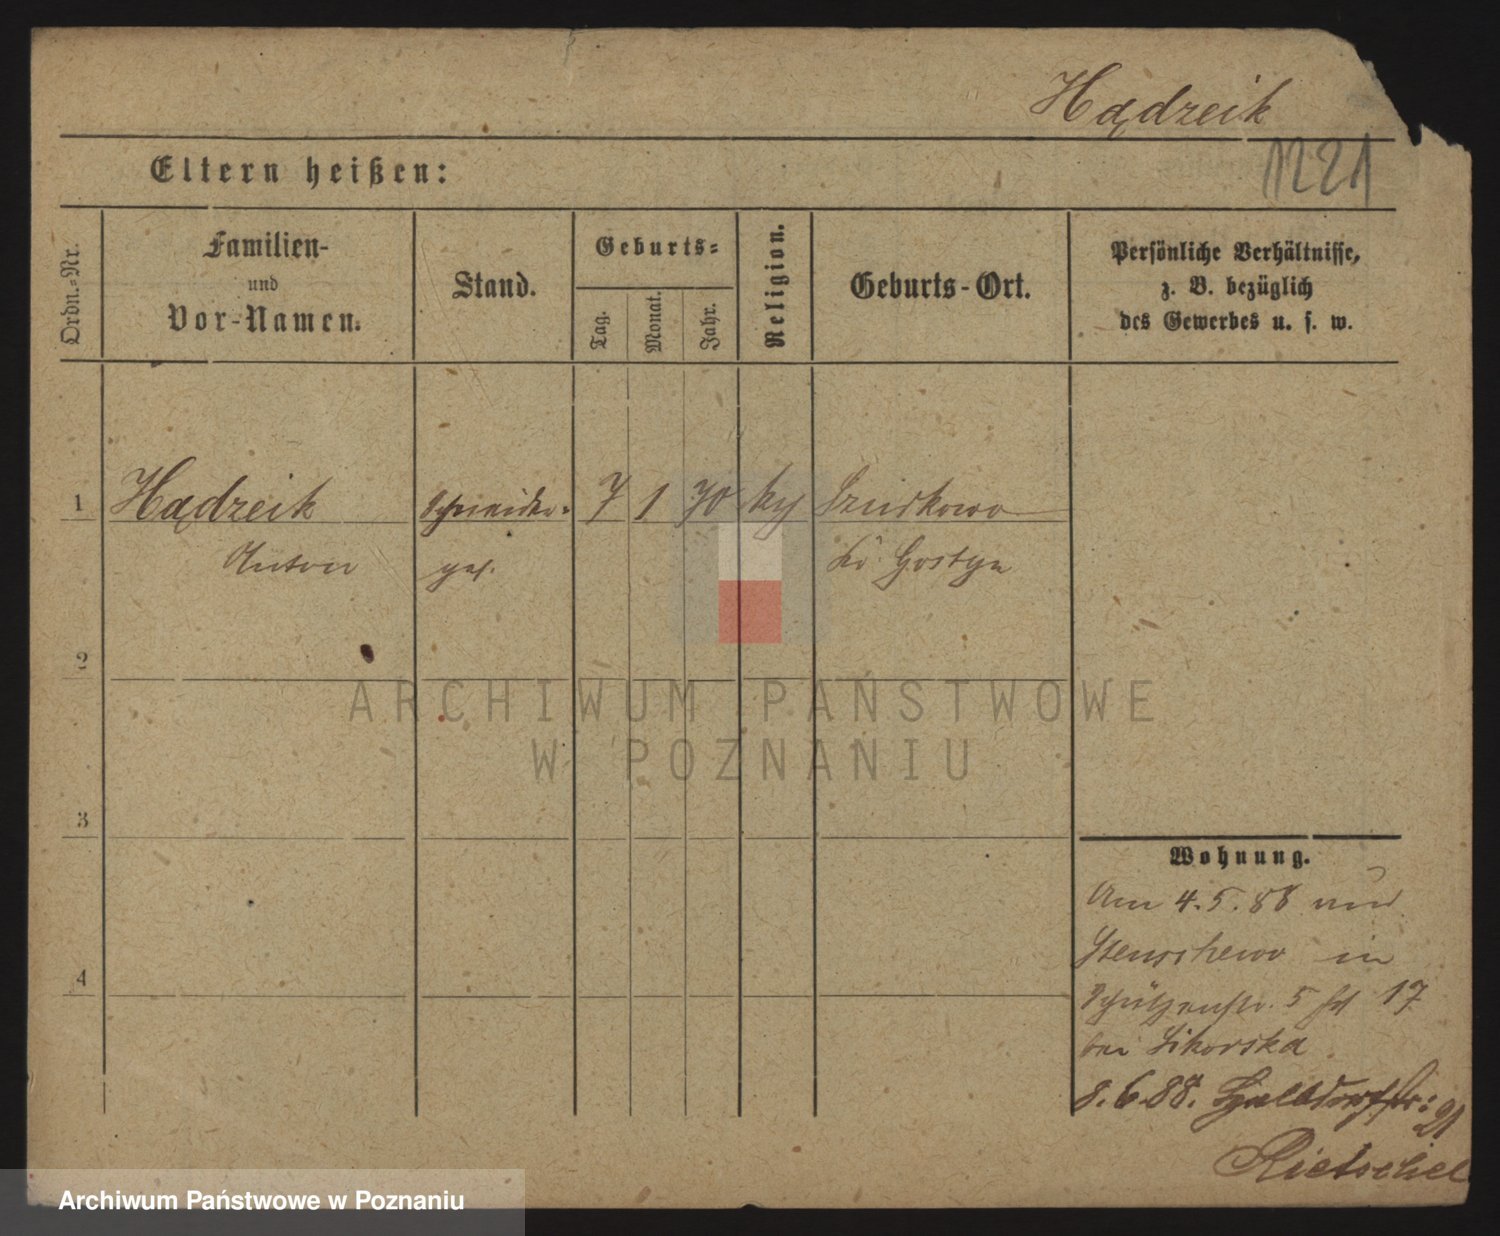 Hądzeik
1221
Eltern heißen:
Ordn.-Nr.
Familien-
und
Vor-Namen.
Stand.
Geburts-
Tag.
Monat.
Jahr.
Religion.
Geburts-Ort.
Persönliche Verhältnisse,
z. B. bezüglich
des Gewerbes u. s. w.
1 Hądzeik Schneider- 7 1 70 ky
Anton ges. Kr. Gostyn
2
3
4
ARCHIWUM PAŃSTWOWE
W POZNANIU
Wohnung.
Am 4. 5. 88 aus
Stenschewo in
Schützenstr. 5 17
bei Sikorska
8. 6. 88. Halbdorfstr: 21
Rietschel
Archiwum Państwowe w Poznaniu